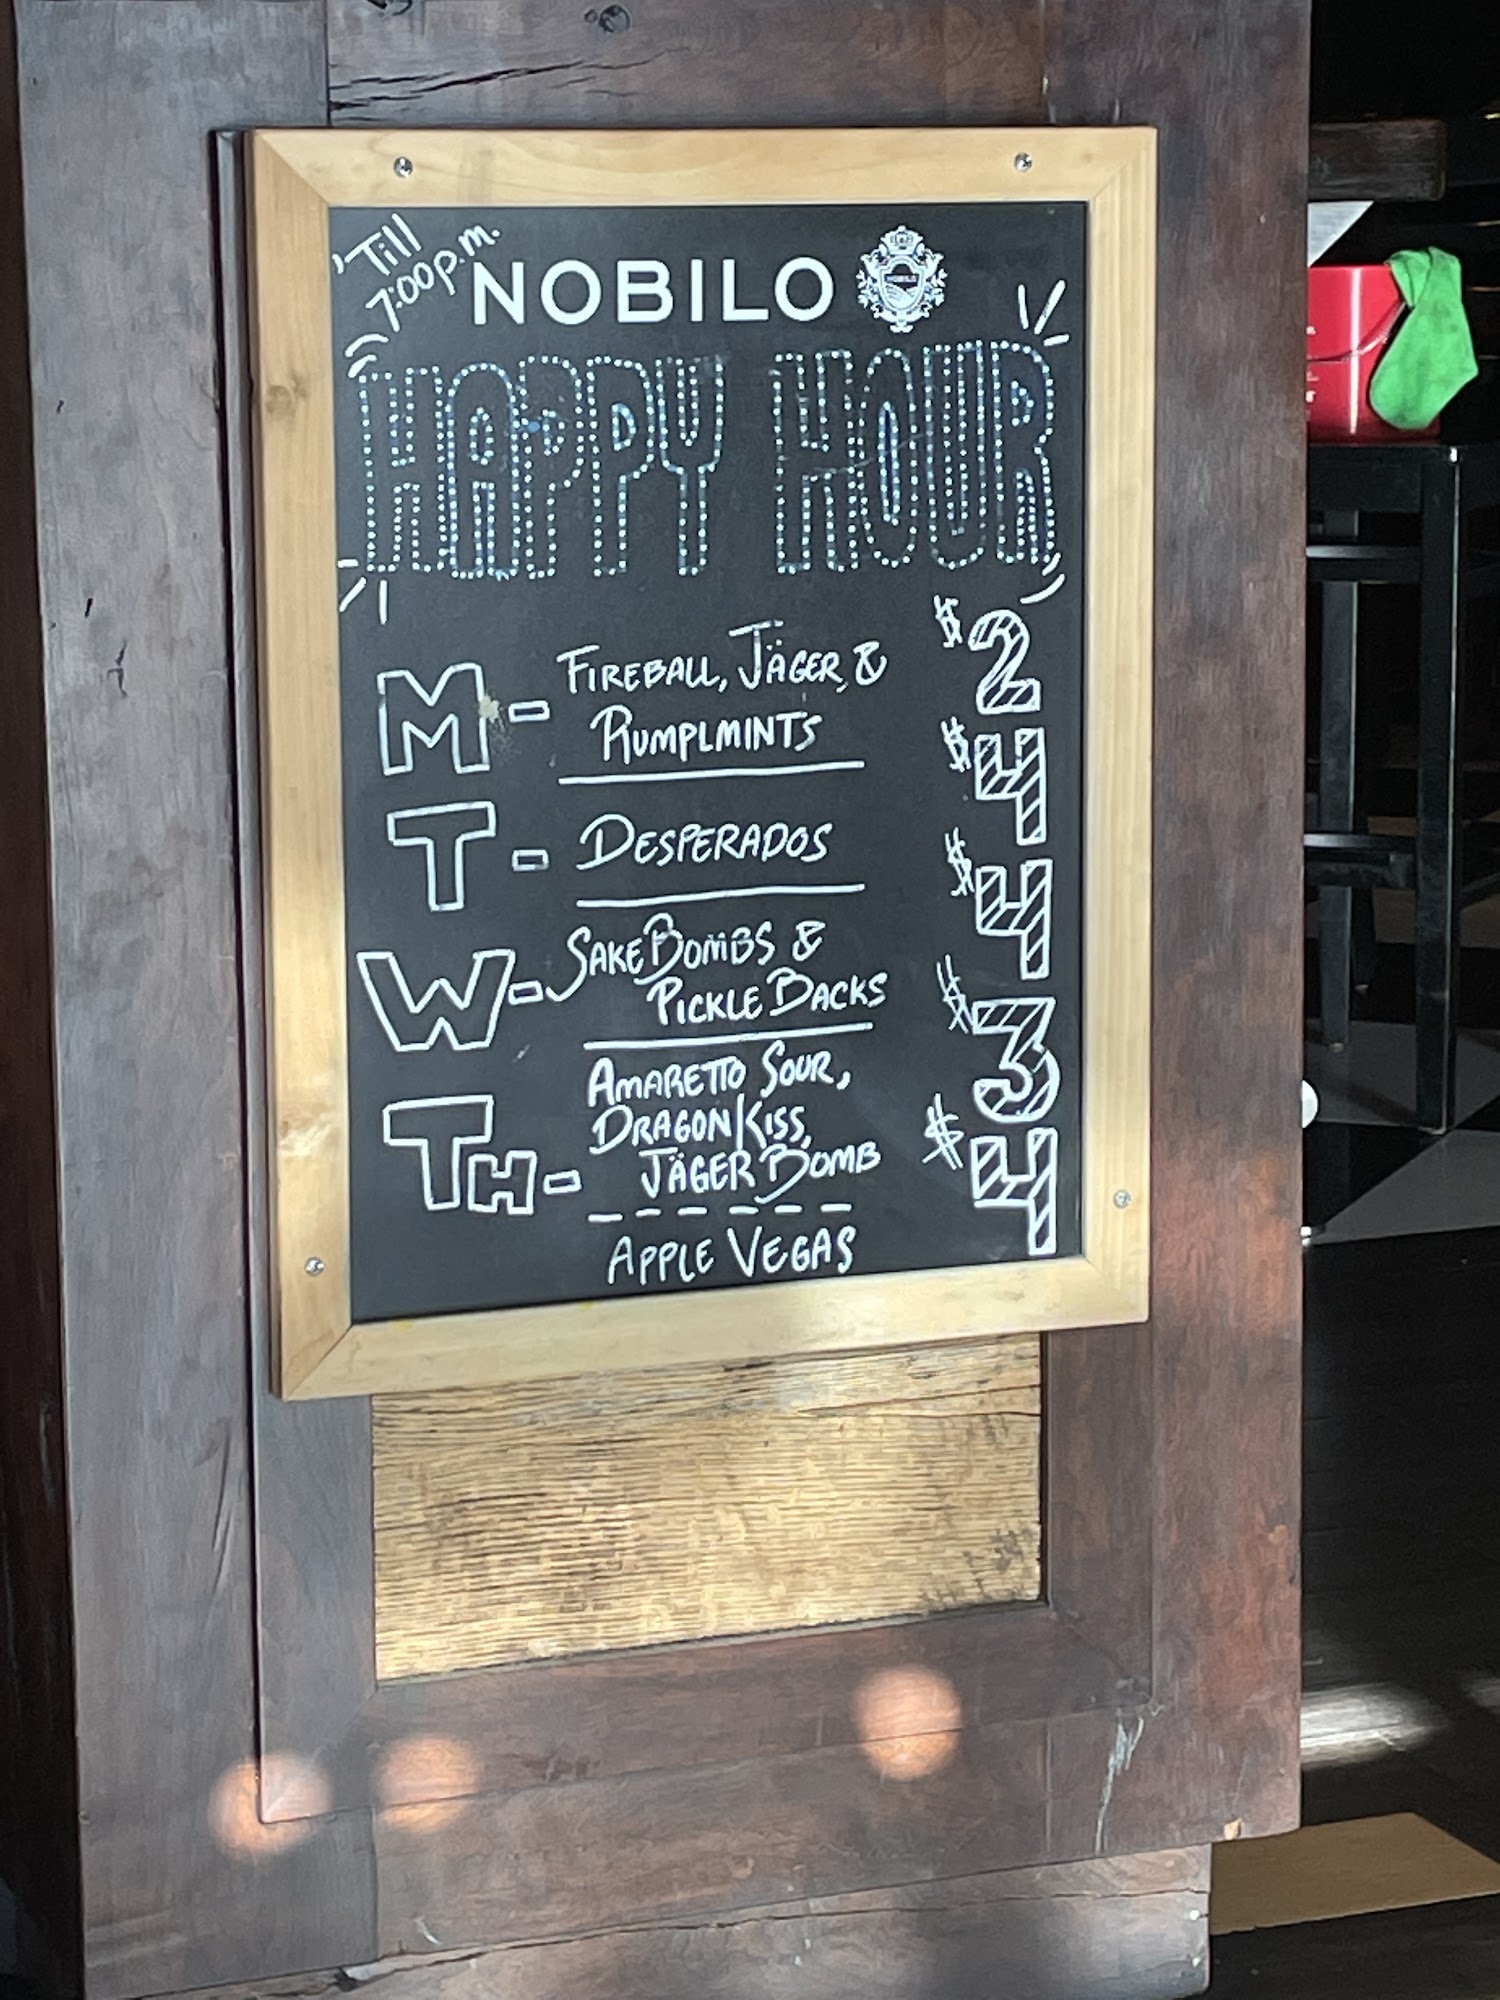 'Till
7:00p.m.
NOBILO
NOBILO
HAPPY HOUR
M- FIREBALL, JÄGER, & $2
RUMPLMINTS
$4
T- DESPERADOS
$4
W- SAKE BOMBS &
PICKLE BACKS
$3
AMARETTO SOUR,
DRAGON KISS,
TH- JÄGER BOMB $4
APPLE VEGAS